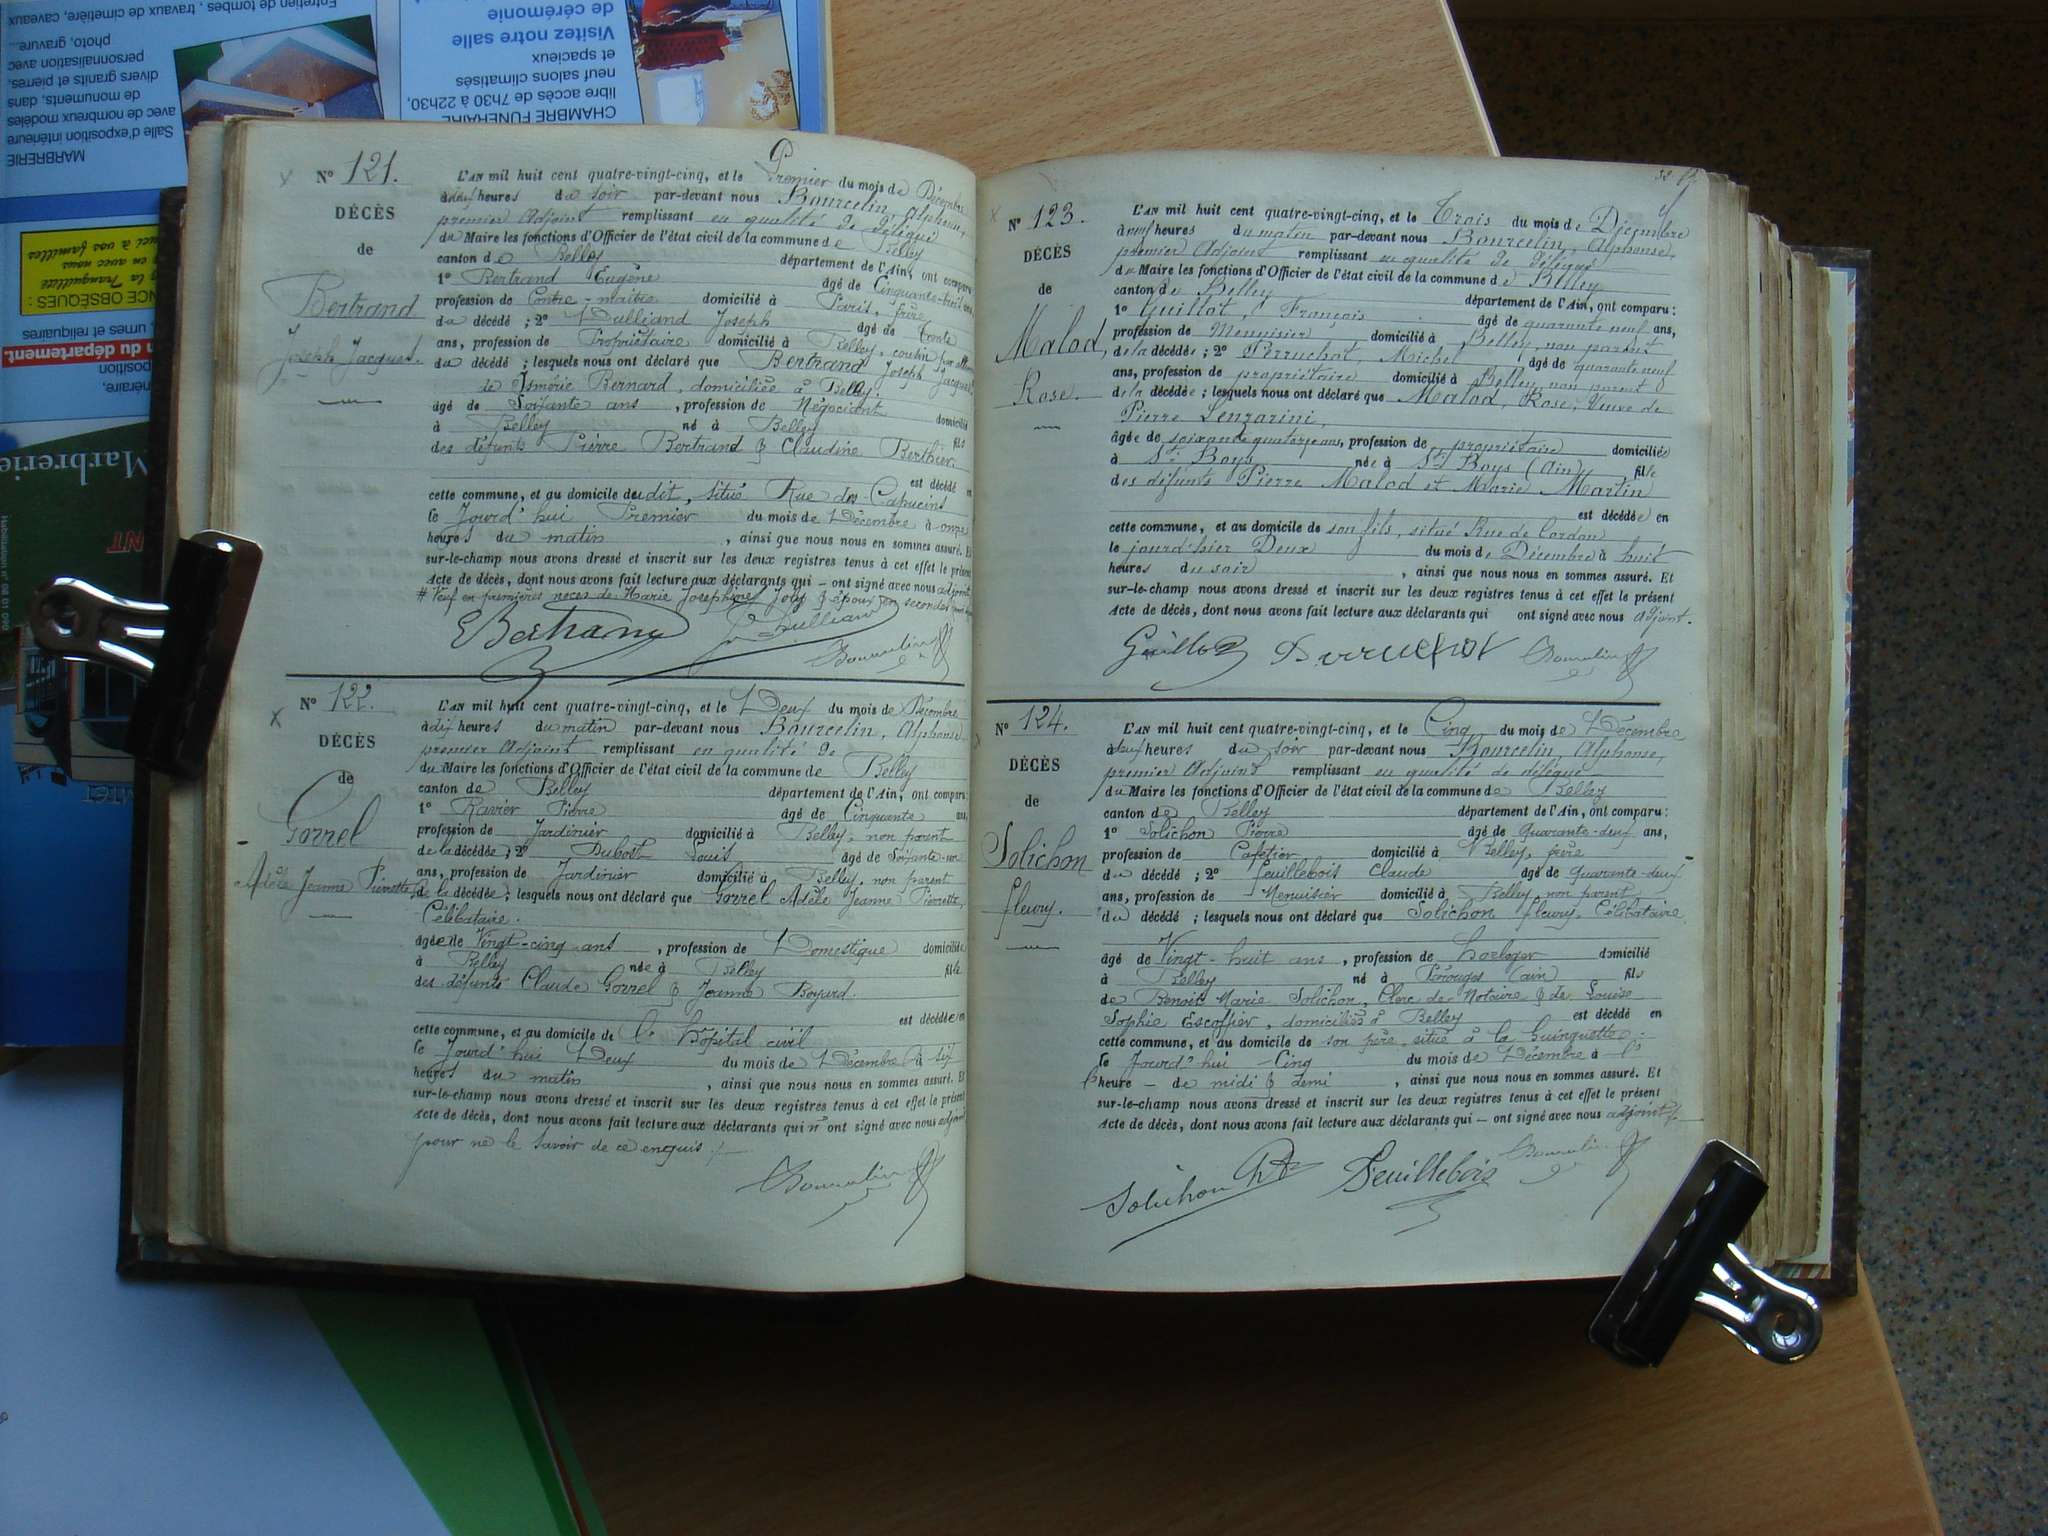 Entretien de tombes, travaux de cimetière, caveaux
photo, gravure...
personnalisation avec
divers granits et pierres,
de monuments, dans
avec de nombreux modèles
Salle d'exposition intérieure
MARBRERIE
de cérémonie
Visitez notre salle
et spacieux
neuf salons climatisés
libre accès de 7h30 à 22h30,
CHAMBRE FUNÉRAIRE
la Tranquillité
en avec nous
à vos familles
NCE OBSÈQUES :
, urnes et reliquaires
n du département.
position
néraire,
Marbrerie
N° 121.
DÉCÈS
de
Bertrand
Joseph Jacques.
L'AN mil huit cent quatre-vingt-cinq, et le Premier du mois de Décembre
heures du soir par-devant nous Bourcelin, Alphonse,
premier Adjoint remplissant en qualité de délégué
du Maire les fonctions d'Officier de l'état civil de la commune de Belley
canton de Belley département de l'Ain, ont comparu
1° Bertrand Eugène âgé de Cinquante-huit ans,
profession de Contre-maître domicilié à Paris, frère
du décédé ; 2° Dulliand Joseph âgé de trente
ans, profession de Propriétaire domicilié à Belley, cousin par
du décédé ; lesquels nous ont déclaré que Bertrand Joseph Jacques
de Ismérie Bernard, domiciliée à Belley.
âgé de Soixante ans, profession de Négociant domicilié
à Belley né à Belley fils
des défunts Pierre Bertrand & Claudine Berthier.
est décédé en
cette commune, et au domicile dudit, situé Rue des Capucins
le Jourd'hui Premier du mois de Décembre à onze
heures du matin, ainsi que nous nous en sommes assuré. Et
sur-le-champ nous avons dressé et inscrit sur les deux registres tenus à cet effet le présent
Acte de décès, dont nous avons fait lecture aux déclarants qui – ont signé avec nous adjoint
# Veuf en premières noces de Marie Josephine Joly & époux en secondes
EBertrand J Dulliand
Bourcelin
N° 122.
DÉCÈS
de
Gorrel
Adèle Jeanne Pierrette
L'AN mil huit cent quatre-vingt-cinq, et le Deux du mois de Décembre
à dix heures du matin par-devant nous Bourcelin, Alphonse,
premier Adjoint remplissant en qualité de
du Maire les fonctions d'Officier de l'état civil de la commune de Belley
canton de Belley département de l'Ain, ont comparu :
1° Ravier Pierre âgé de Cinquante ans,
profession de Jardinier domicilié à Belley, non parent
de la décédée ; 2° Duboth Louis âgé de Soixante-un
ans, profession de Jardinier domicilié à Belley, non parent
de la décédée ; lesquels nous ont déclaré que Gorrel Adèle Jeanne Pierrette,
Célibataire.
âgée de Vingt-cinq ans, profession de Domestique domiciliée
à Belley née à Belley fille
des défunts Claude Gorrel & Jeanne Boyard.
est décédée en
cette commune, et au domicile de l'Hôpital civil
le Jourd'hui Deux du mois de Décembre à six
heures du matin, ainsi que nous nous en sommes assuré. Et
sur-le-champ nous avons dressé et inscrit sur les deux registres tenus à cet effet le présent
Acte de décès, dont nous avons fait lecture aux déclarants qui n'ont signé avec nous adjoint
pour ne le savoir de ce enquis
Bourcelin
N° 123.
DÉCÈS
de
Malod,
Rose.
L'AN mil huit cent quatre-vingt-cinq, et le Trois du mois de Décembre
à neuf heures du matin par-devant nous Bourcelin, Alphonse,
premier Adjoint remplissant en qualité de délégué
du Maire les fonctions d'Officier de l'état civil de la commune de Belley
canton de Belley département de l'Ain, ont comparu :
1° Guillot, François âgé de quarante neuf ans,
profession de Menuisier domicilié à Belley, non parent
de la décédée ; 2° Perruchot, Michel âgé de quarante neuf
ans, profession de propriétaire domicilié à Belley, non parent
de la décédée ; lesquels nous ont déclaré que Malod, Rose, Veuve de
Pierre Lenzarini,
âgée de soixante quatorze ans, profession de propriétaire domiciliée
à St Boys née à St Boys (Ain) fille
des défunts Pierre Malod et Marie Martin
est décédée en
cette commune, et au domicile de son fils, situé Rue de Cordon
le jourd'hier Deux du mois de Décembre à huit
heures du soir, ainsi que nous nous en sommes assuré. Et
sur-le-champ nous avons dressé et inscrit sur les deux registres tenus à cet effet le présent
Acte de décès, dont nous avons fait lecture aux déclarants qui ont signé avec nous adjoint.
Guillot Perruchot Bourcelin
N° 124.
DÉCÈS
de
Solichon
fleury.
L'AN mil huit cent quatre-vingt-cinq, et le Cinq du mois de Décembre
heures du soir par-devant nous Bourcelin, Alphonse,
premier Adjoint remplissant en qualité de délégué
du Maire les fonctions d'Officier de l'état civil de la commune de Belley
canton de Belley département de l'Ain, ont comparu :
1° Solichon Pierre âgé de Quarante-deux ans,
profession de Cafetier domicilié à Belley, frère
du décédé ; 2° feuillebois Claude âgé de quarante-deux
ans, profession de Menuisier domicilié à Belley, non parent
du décédé ; lesquels nous ont déclaré que Solichon fleury, Célibataire
âgé de Vingt-huit ans, profession de horloger domicilié
à Belley né à Pérouges (ain) fils
de Benoit Marie Solichon, Clerc de Notaire & de Louise
Sophie Escoffier, domiciliés à Belley est décédé en
cette commune, et au domicile de son père situé à la Guinguette
le Jourd'hui Cinq du mois de Décembre à l'
heure – de midi & demi, ainsi que nous nous en sommes assuré. Et
sur-le-champ nous avons dressé et inscrit sur les deux registres tenus à cet effet le présent
Acte de décès, dont nous avons fait lecture aux déclarants qui – ont signé avec nous adjoint
Solichon Feuillebois Bourcelin